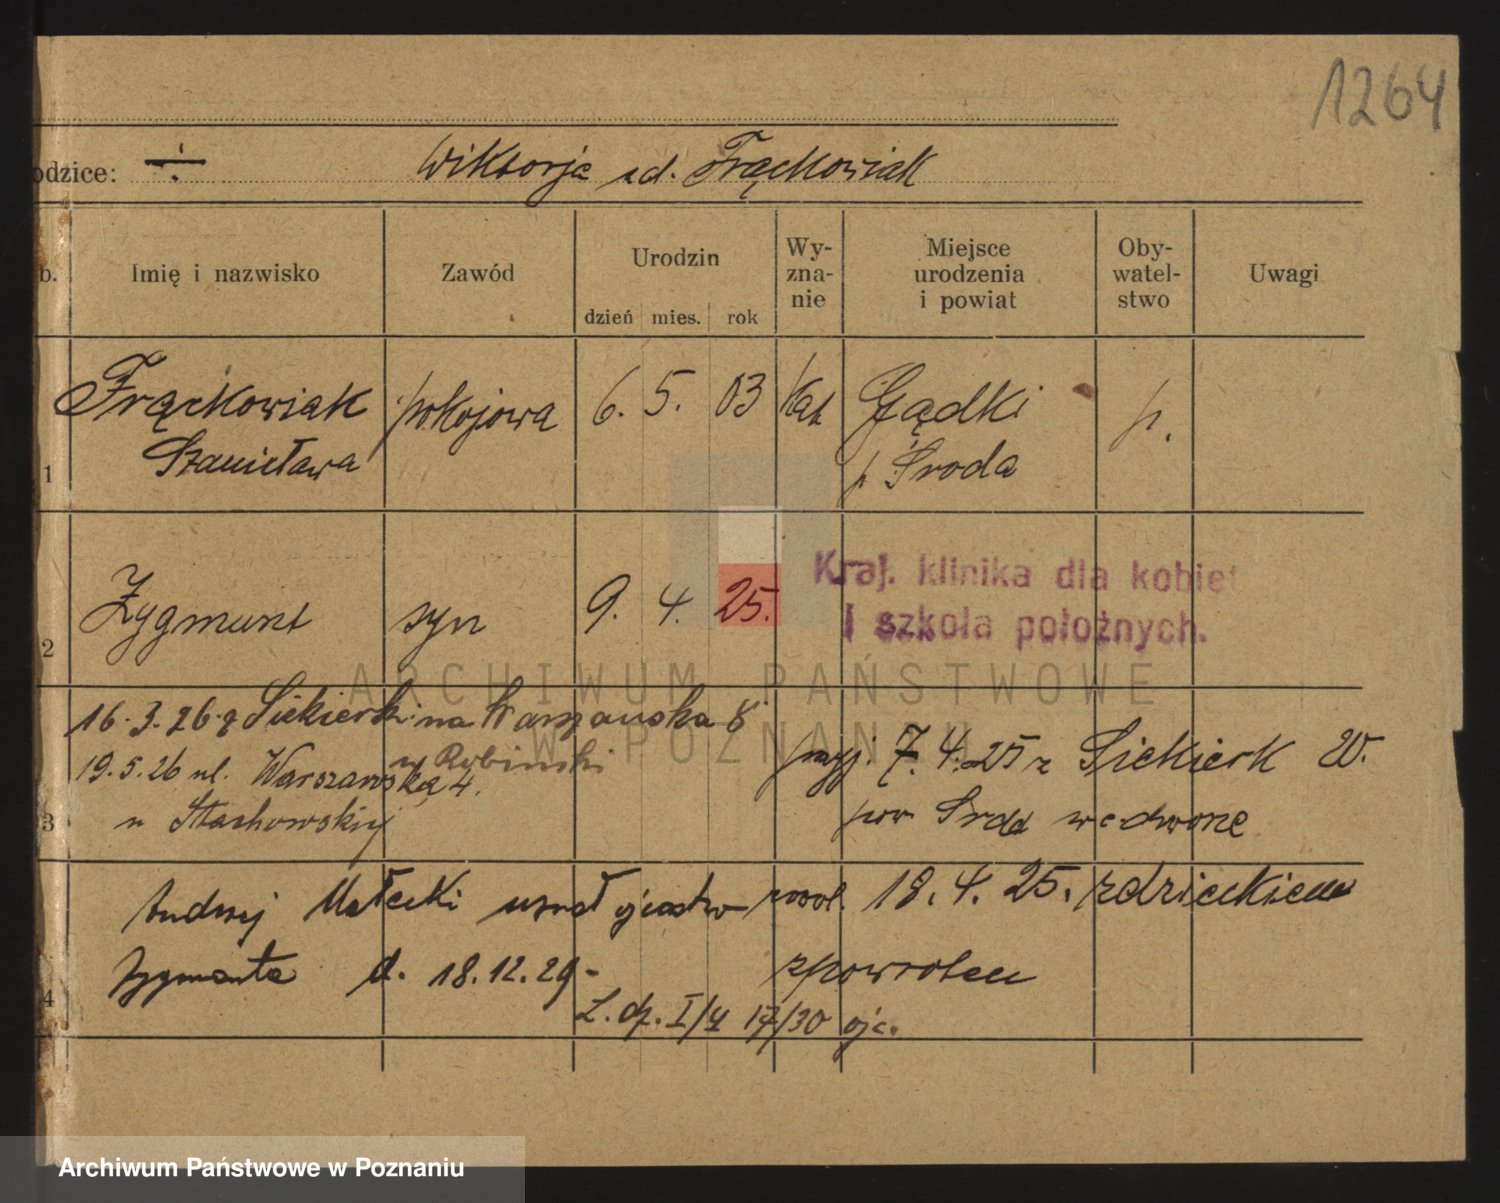 1264
odzice: ÷ Wiktorja zd. Frąckowiak
b. Imię i nazwisko Zawód Urodzin dzień mies. rok Wy-zna-nie Miejsce urodzenia i powiat Oby-watel-stwo Uwagi
1 Frąckowiak Stanisława pokojowa 6. 5. 03 kat Gądki p. Środa p.
2 Zygmunt syn 9. 4. 25.
Kraj. klinika dla kobiet
i szkoła położnych.
16.3.26 z Siekierk na Warszawska 6
u Rybinski
19.5.26 ul. Warszawska 4.
3 u Stachowskiej
przyj. 7.4.25 z Siekierk W.
pow Środa
Andrzej Małecki uznał ojcostwo
4 Zygmunta d. 18.12.29-
L. dz. I/4 17/30 ojc.
18.4.25. z dzieckiem
zpowrotem
ARCHIWUM PAŃSTWOWE
W POZNANIU
Archiwum Państwowe w Poznaniu